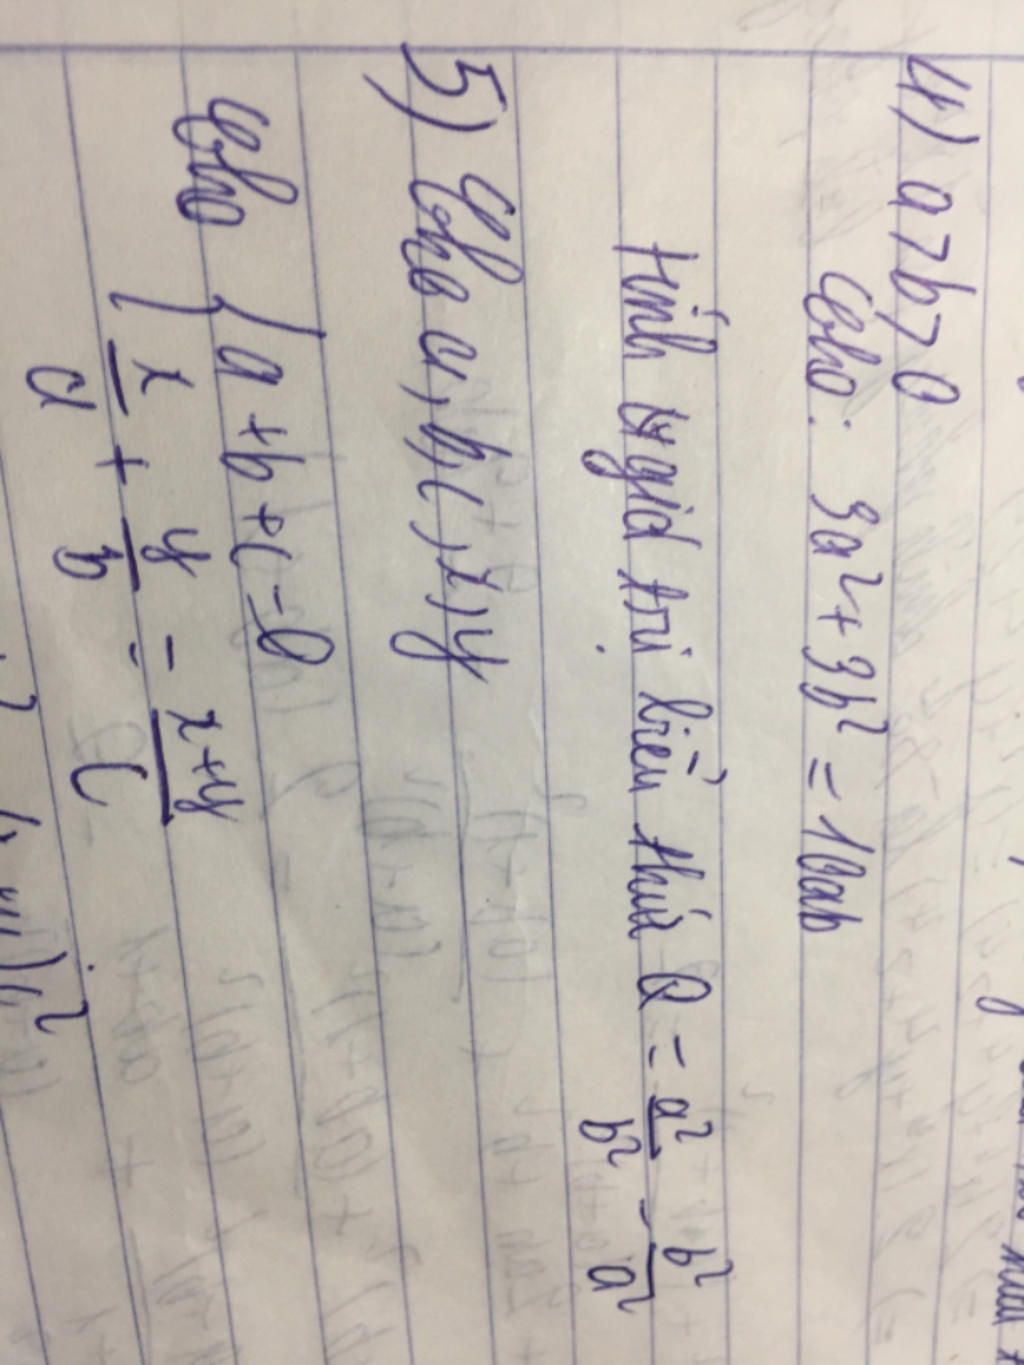 4) a > b > 0
Cho: 3a² + 3b² = 10ab
tính giá trị biểu thức Q = a²/b² - b²/a²
5) Cho a, b, c, x, y
Cho { a + b + c = 0
x/a + y/b = x+y/c